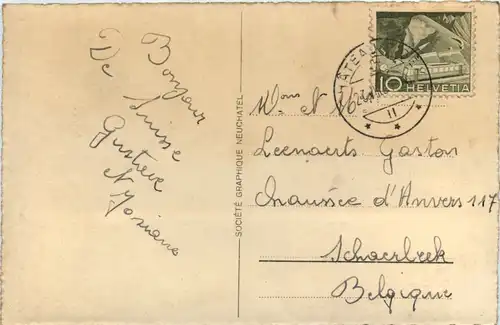 Bonjour
De Suisse
Gustave
et Josiane
SOCIÉTÉ GRAPHIQUE NEUCHATEL
10 HELVETIA
CHATEAU
Leenaerts Gaston
Chaussée d'Anvers 117
Schaerbeek
Belgique